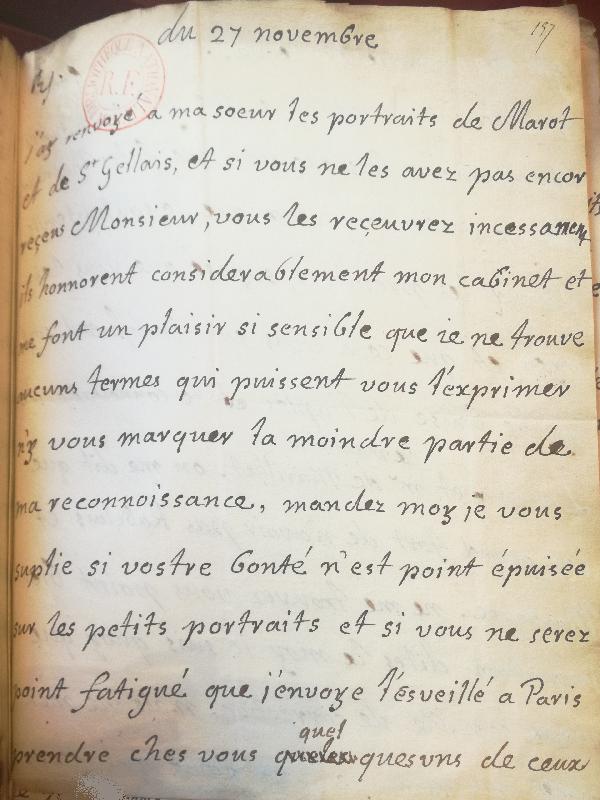 du 27 novembre
157
BIBLIOTHEQUE NATIONALE
R.F.
j'ay renvoyé a ma soeur les portraits de Marot
et de St Gellais, et si vous ne les avez pas encor
reçeus Monsieur, vous les reçeuvrez incessament
ils honnorent considerablement mon cabinet et
me font un plaisir si sensible que ie ne trouve
aucuns termes qui puissent vous l'exprimer
n'y vous marquer la moindre partie de
ma reconnoissance, mandez moy je vous
suplie si vostre bonté n'est point épuisée
sur les petits portraits et si vous ne serez
point fatigué que j'envoye l'ésveillé a Paris
quel
prendre ches vous quesuns de ceux